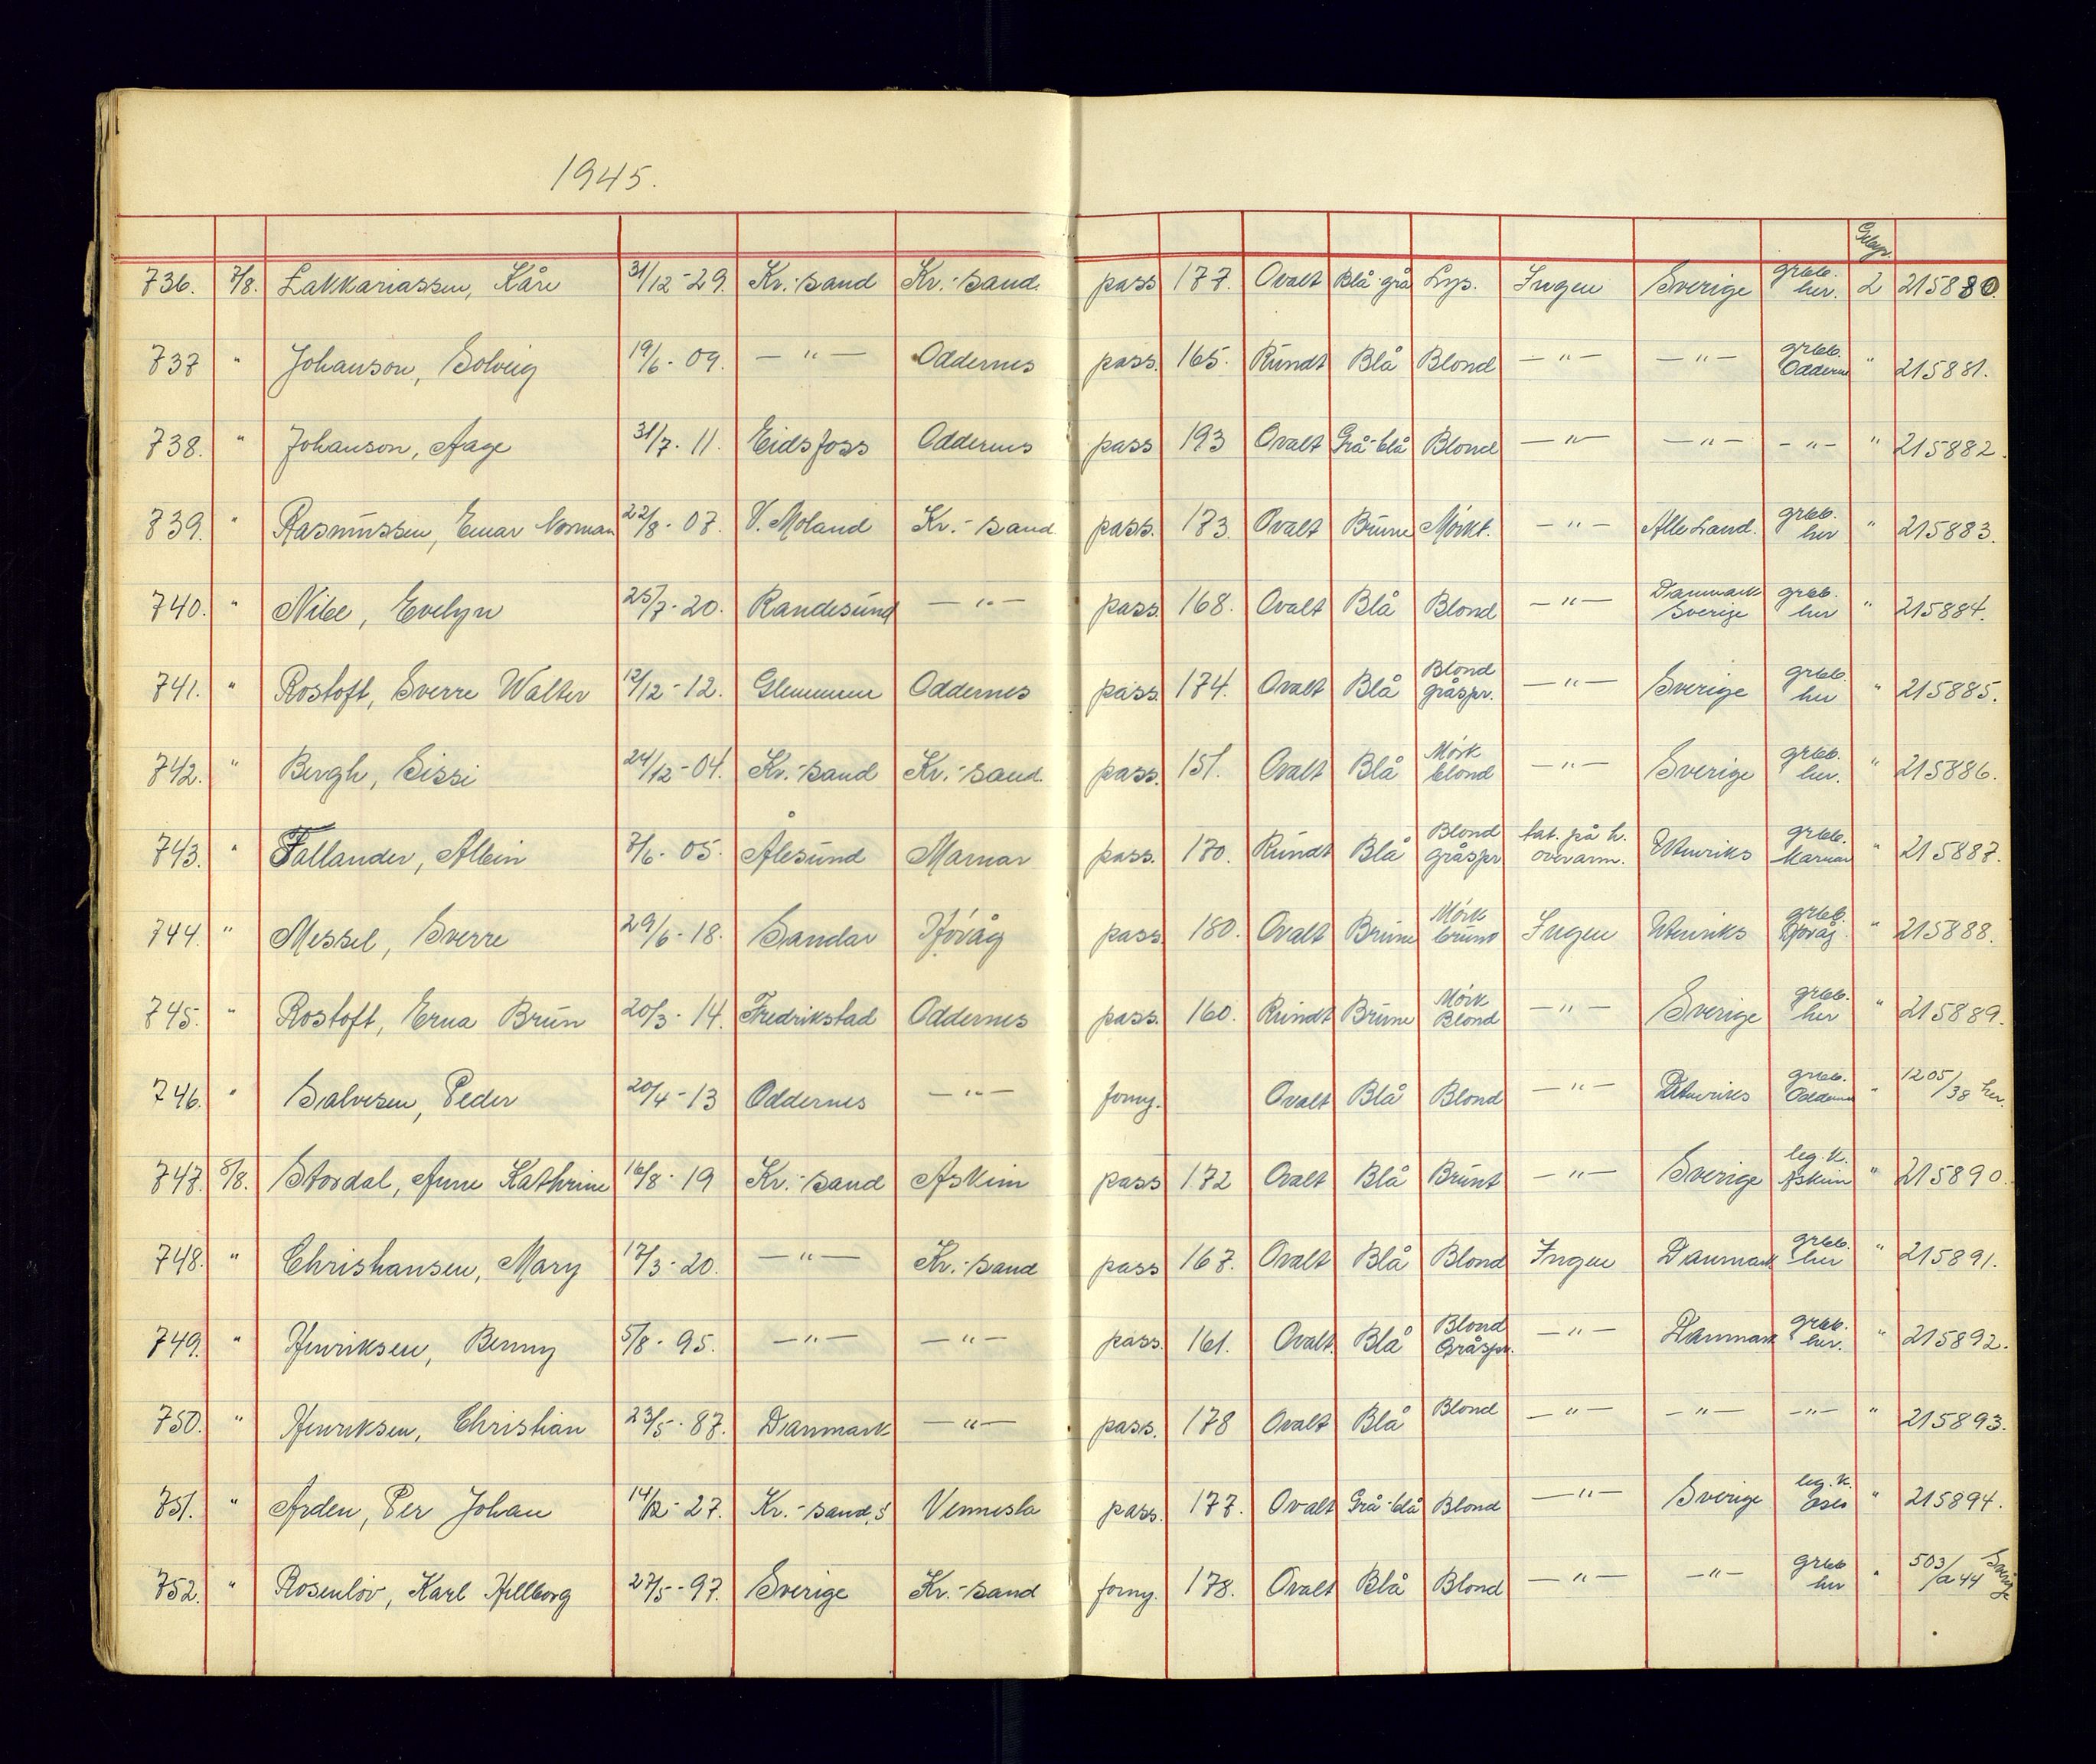 1945.
Gebyr.
736. 7/8. Zakkariassen, Kåre 31/12-29. Kr.-sand Kr.-sand. pass 177. Ovalt Blå-grå Lys. Ingen Sverige grbb. her. 2 215880.
737 " Johanson, Solveig 19/6-09. —"— Oddernes pass. 165. Rundt Blå Blond —"— —"— grbb. Oddernes " 215881.
738. " Johanson, Aage 31/7-11. Eidsfoss Oddernes pass 193 Ovalt Grå-blå Blond —"— —"— —"— " 215882.
739. " Rasmussen, Einar Norman 22/8-07. V. Moland Kr.-sand pass. 173. Ovalt Brune Mørkt. —"— Alle Land. grbb. her " 215883.
740. " Nibe, Evelyn 25/7-20. Randesund —"— pass. 168. Ovalt Blå Blond —"— Danmark Sverige grbb. her " 215884.
741. " Rostoft, Sverre Walter 12/12-12. Glemmen Oddernes pass. 174. Ovalt Blå Blond gråspr. —"— Sverige grbb. her " 215885.
742. " Bergh, Sissi 24/12-04. Kr.-sand Kr.-sand. pass. 151. Ovalt Blå Mørk blond —"— Sverige grbb. her. " 215886.
743. " Fallander, Albin 7/6-05. Ålesund Marnar pass. 170. Rundt Blå Blond gråspr tat. på h. overarm. Utenriks grbb. Marnar " 215887.
744. " Messel, Sverre 29/6-18. Sandar Høvåg pass. 180. Ovalt Brune Mørk brunt Ingen Utenriks grbb. Høvåg. " 215888.
745. " Rostoft, Erna Brun 20/3-14. Fredrikstad Oddernes pass. 160. Rundt Brune Mørk Blond —"— Sverige grbb. her " 215889.
746. " Salvesen, Peder 20/4-13 Oddernes —"— forny. Ovalt Blå Blond —"— Utenriks grbb. Oddernes " 1205/38 her.
747. 8/8. Stordal, Anne Kathrine 16/8-19 Kr.-sand Askim pass 172 Ovalt Blå Brunt —"— Sverige leg.k. Askim " 215890.
748. " Christiansen, Mary 17/3-20. —"— Kr.-sand pass 167. Ovalt Blå Blond Ingen Danmark grbb. her " 215891.
749. " Henriksen, Benny 5/8-95. —"— —"— pass. 161. Ovalt. Blå Blond Gråspr. —"— Danmark grbb. her. " 215892.
750. " Henriksen, Christian 23/5-87. Danmark —"— pass. 178 Ovalt Blå Blond —"— —"— —"— " 215893.
751. " Arden, Per Johan 14/12-27. Kr.-sand, S Vennesla pass. 177. Ovalt Grå-blå Blond —"— Sverige leg.k. Oslo " 215894.
752. " Rosenlöv, Karl Hillborg 27/5-97. Sverige Kr.-sand forny. 178. Ovalt Blå Blond —"— —"— grbb her " 503/a 44 Sverige